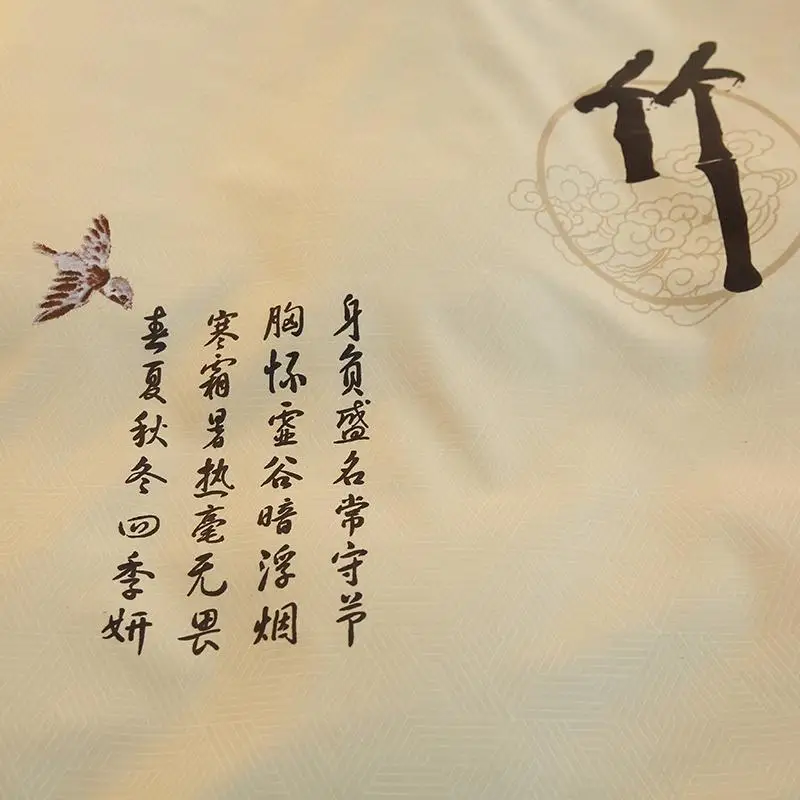 竹
身负盛名常守节
胸怀虚谷暗浮烟
寒霜暑热毫无畏
春夏秋冬四季妍